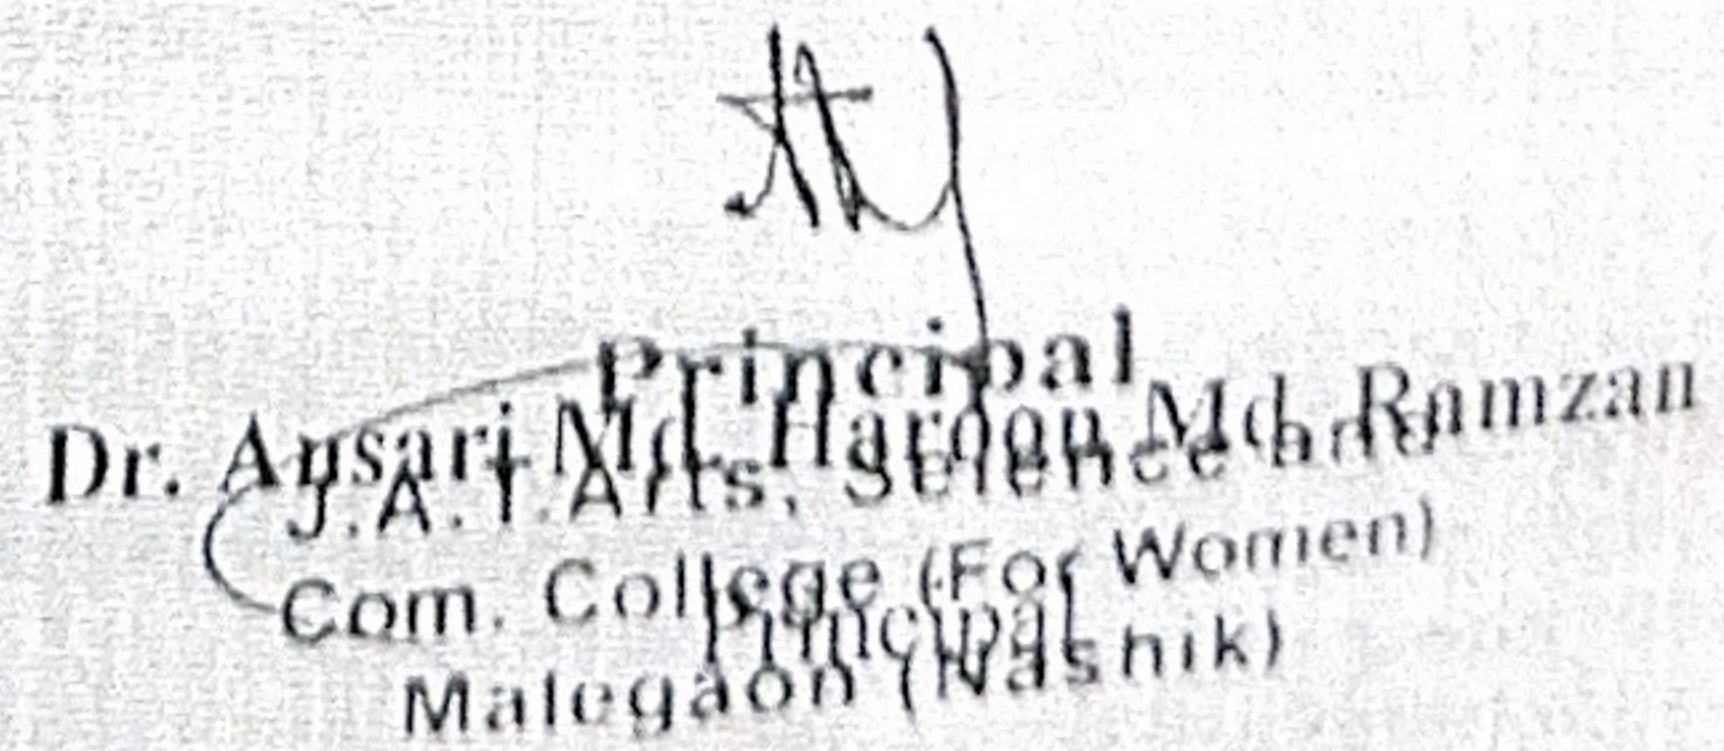 Principal
Dr. Ansari Md. Haroon Md. Ramzan
J.A.T. Arts, Science &
Com. College (For Women)
Principal
Malegaon (Nashik)